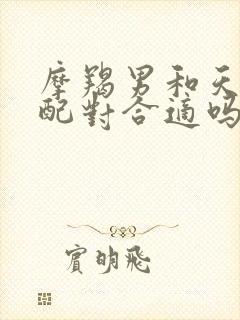 摩羯男和天
配對合適嗎
賓明飛